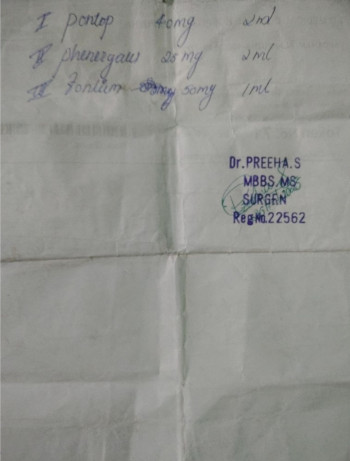 I pontop 40mg 2ml
II phenergan 25mg 2ml
III Fontum 50mg 1ml
Dr.PREEHA.S
MBBS.MS
SURGEN
Reg№.22562